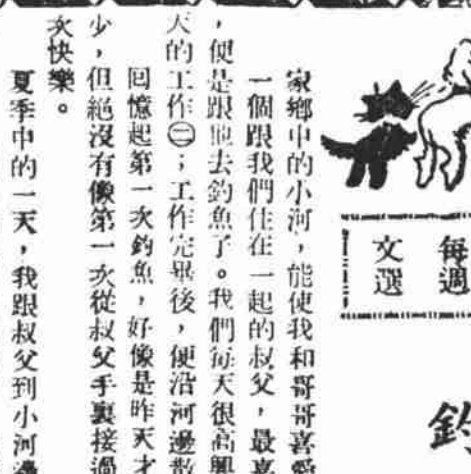 每週
文選
釣
家鄉中的小河，能使我和哥哥喜愛
一個跟我們住在一起的叔父，最喜
，便是跟他去釣魚了。我們每天很高興
天的工作㊁；工作完畢後，便沿河邊散
回憶起第一次釣魚，好像是昨天才
少，但絕沒有像第一次從叔父手裏接過
次快樂。
夏季中的一天，我跟叔父到小河邊